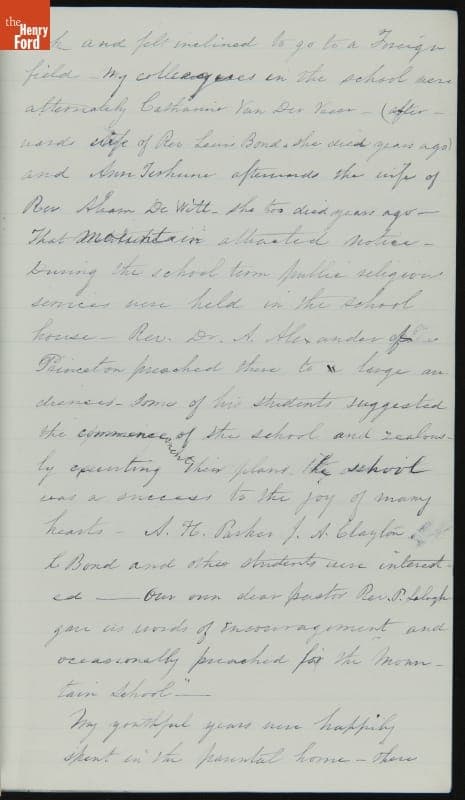 the
Henry
Ford
and felt inclined to go to a Foreign
field - My colleagues in the school were
alternately Catharine Van Der Veer - (after-
wards wife of Rev. Lewis Bond & she died years ago)
and Ann Terhune afterwards the wife of
Rev. Abram De Witt - she too died years ago -
That mountain attracted notice -
During the school term public religious
services were held in the school
house - Rev. Dr. A. Alexander of
Princeton preached there to a large au
diences - Some of his students suggested
the commence ment of the school and zealous-
ly executing their plans the school
was a success to the joy of many
hearts - A. H. Parker J. A. Clayton
L Bond and other students were interest-
ed - Our own dear pastor Rev. P. Labagh
gave us words of encouragement and
occasionally preached for the "Moun-
tain School" -
My youthful years were happily
spent in the parental home - there